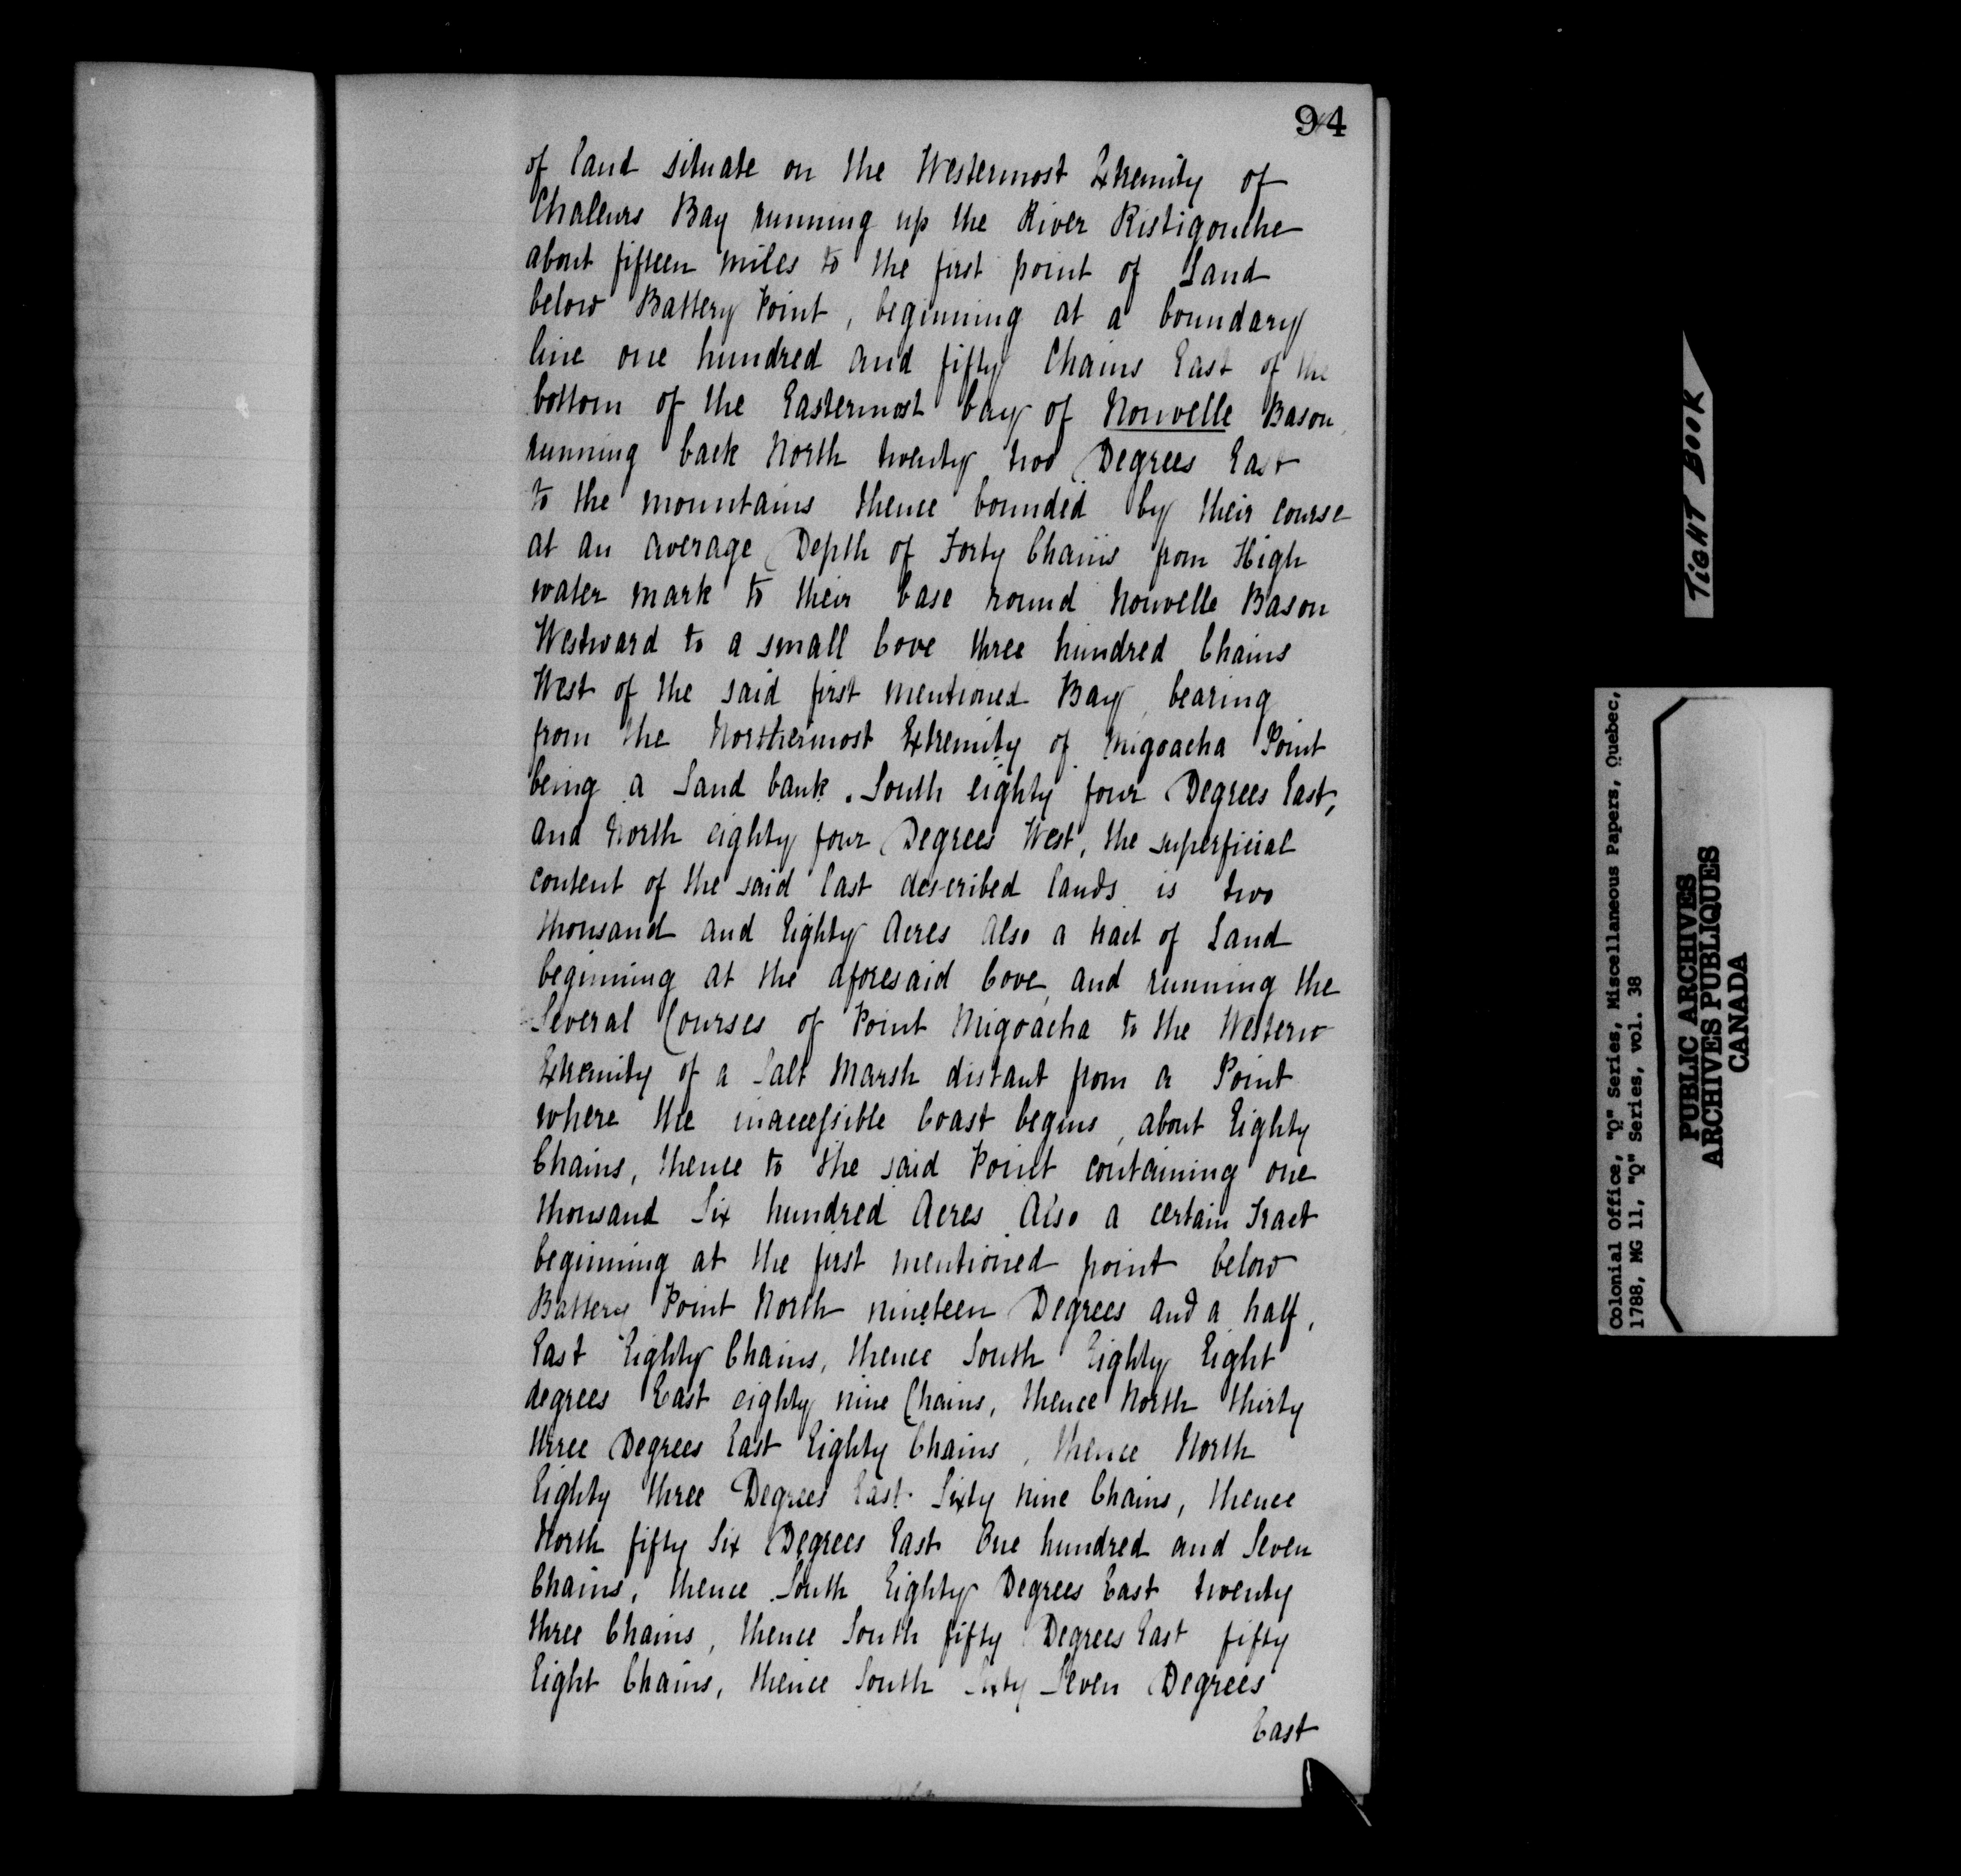 94
of land situate on the Westermost Extremity of
Chaleurs Bay running up the River Ristigouche
about fifteen miles to the first point of Land
below Battery Point, beginning at a boundary
line one hundred and fifty Chains East of the
bottom of the Eastermost bay of Nouvelle Bason,
running back North twenty two Degrees East
to the mountains thence bounded by their course
at an average Depth of Forty Chains from High
water mark to their base round Nouvelle Bason
Westward to a small Cove three hundred Chains
West of the said first mentioned Bay, bearing
from the Northermost Extremity of Migoacha Point
being a Sand bank. South eighty four Degrees East,
and North eighty four Degrees West, the superficial
content of the said last described lands is two
thousand and Eighty Acres Also a tract of Land
beginning at the aforesaid Cove, and running the
Several Courses of Point Migoacha to the Western
Extremity of a Salt Marsh distant from a Point
where the inaccessible Coast begins, about Eighty
Chains, thence to the said Point containing one
thousand Six hundred Acres Also a certain Tract
beginning at the first mentioned point below
Battery Point North nineteen Degrees and a half,
East Eighty Chains, thence South Eighty Eight
degrees East eighty nine Chains, thence North thirty
three Degrees East Eighty Chains, thence North
Eighty three Degrees East Sixty nine Chains, thence
North fifty Six Degrees East One hundred and Seven
Chains, thence South Eighty Degrees East twenty
three Chains, thence South fifty Degrees East fifty
Eight Chains, thence South Sixty Seven Degrees
East
TIGHT BOOK
Colonial Office, "Q" Series, Miscellaneous Papers, Quebec,
1788, MG 11, "Q" Series, vol. 38
PUBLIC ARCHIVES
ARCHIVES PUBLIQUES
CANADA